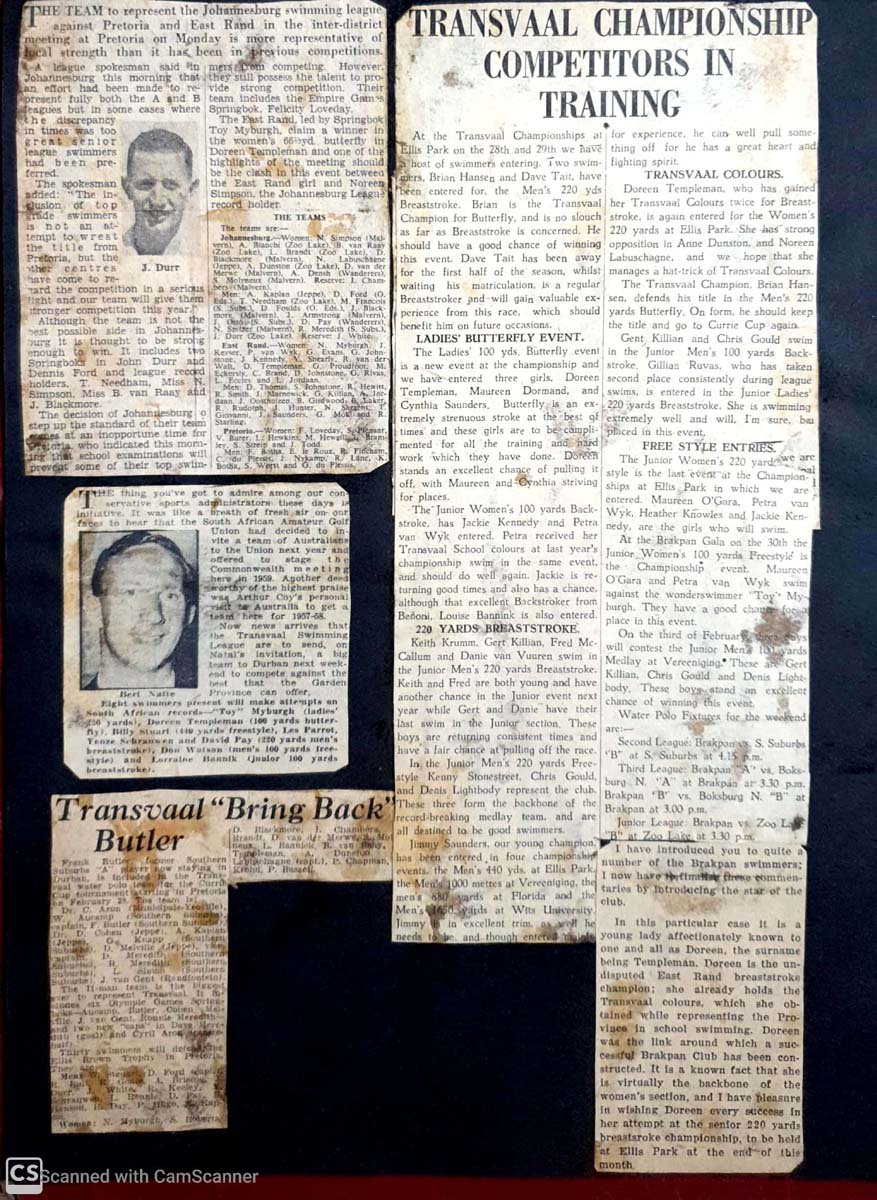 THE TEAM to represent the Johannesburg swimming league
against Pretoria and East Rand in the inter-district
meeting at Pretoria on Monday is more representative of
local strength than it has been in previous competitions.
A league spokesman said in
Johannesburg this morning that
an effort had been made to re-
present fully both the A and B
leagues but in some cases where
the discrepancy
in times was too
great senior
league swimmers
had been pre-
ferred.
The spokesman
added: "The in-
clusion of top
grade swimmers
is not an at-
tempt to wrest
the title from
Pretoria, but the
other centres
have come to re-
gard the competition in a serious
light and our team will give them
stronger competition this year."
Although the team is not the
best possible side in Johannes-
burg it is thought to be strong
enough to win. It includes two
Springboks in John Durr and
Dennis Ford and league record
holders. T. Needham, Miss N.
Simpson, Miss B. van Raay and
J. Blackmore.
The decision of Johannesburg to
step up the standard of their team
comes at an inopportune time for
Pretoria, who indicated this morn-
ing that school examinations will
prevent some of their top swim-
J. Durr
mers from competing. However,
they still possess the talent to pro-
vide strong competition. Their
team includes the Empire Games
Springbok, Felicity Loveday.
The East Rand, led by Springbok
Toy Myburgh, claim a winner in
the women's 66⅔yd. butterfly in
Doreen Templeman and one of the
highlights of the meeting should
be the clash in this event between
the East Rand girl and Noreen
Simpson, the Johannesburg League
record holder.
THE TEAMS
The teams are:—
Johannesburg.—Women: N. Simpson (Mal-
vern), A. Bianchi (Zoo Lake), B. van Raay
(Zoo Lake), L. Brandt (Zoo Lake), D.
Blackmore (Malvern), N. Labuschagne
(Jeppe), A. Dunston (Zoo Lake), D. van der
Merwe (Malvern), A. Densh (Wanderers),
S. Molyneux (Malvern). Reserve: I. Cham-
bers (Malvern).
Men: A. Kaplan (Jeppe), D. Ford (O.
Eds.), T. Needham (Zoo Lake), M. Francois
(S. Subs.), D. Foulds (O. Eds.), J. Black-
more (Malvern), J. Armstrong (Malvern),
(S. Subs.), D. Pay (Wanderers),
N. Spitzer (Malvern), R. Meredith (S. Subs.),
J. Durr (Zoo Lake). Reserve: J. White.
East Rand.—Women: N. Myburgh,
Keyser, P. van Wyk, G. Evans, G. John-
stone, J. Kennedy, Shearly, R. van der
Walt, D. Templeman, G. Proudfoot, M.
Eckersly, C. Brand, D. Johnstone, G. Rivas,
L. Eccles and L. Jordaan.
Men: D. Thomas, S. Johnstone, R. Hewitt,
R. Smith, J. Marnewick, G. Killian, A. Jor-
daan, J. Oosthuizen, B. Girdwood, B. Laker,
R. Rudolph, J. Hunter, N.
Giovanni, J. Saunders, G. Gold and R.
Starling.
Pretoria.—Women: F. Loveday, S. Pienaar,
V. Burer, L. Hewkins, M. Hewgill, Bram-
ley, S. Streeip and J. Todd.
Men: F. Botha, E. le Roux, R. Fincham,
C. du Plessis, J. Nykamp, R. Lane, K.
Botha, S. Werst and G. du Plessis.
THE thing you've got to admire among our con-
servative sports administrators these days is
initiative. It was like a breath of fresh air on our
faces to hear that the South African Amateur Golf
Union had decided to in-
vite a team of Australians
to the Union next year and
offered to stage the
Commonwealth meeting
here in 1959. Another deed
worthy of the highest praise
was Arthur Coy's personal
visit to Australia to get a
team here for 1957-58.
Now news arrives that
the Transvaal Swimming
League are to send, on
Natal's invitation, a big
team to Durban next week-
end to compete against the
best that the Garden
Province can offer.
Bert Natte
Eight swimmers present will make attempts on
South African records—"Toy" Myburgh (ladies'
220 yards), Doreen Templeman (100 yards butter-
fly), Billy Stuart (440 yards freestyle), Les Parrot,
Yenze Schrauwen and David Pay (220 yards men's
breaststroke), Don Watson (men's 100 yards free-
style) and Lorraine Bannik (junior 100 yards
breaststroke).
Transvaal "Bring Back"
Butler
Frank Butler, former Southern
Suburbs "A" player now staying in
Durban, is included in the Trans-
vaal water polo team for the Currie
Cup tournament starting in Pretoria
on February 28. The team is:
Dr. C. Aron (Municipals-Yeoville),
W. Aucamp (Southern Suburbs),
captain, F. Butler (Southern Suburbs),
Dr. D. Cohen (Jeppe), A. Kaplan
(Jeppe), G. Knapp (Southern
Suburbs), D. Melville (Jeppe), vice-
captain, D. Meredith (Southern
Suburbs), R. Meredith (Southern
Suburbs), L. Simon (Southern
Suburbs), J. van Gent (Randfontein).
The 11-man team is the biggest
ever to represent Transvaal. It in-
cludes six Olympic Games Spring-
boks—Aucamp, Butler, Cohen, Mel-
ville, J. van Gent, Ronnie Meredith—
and two new "caps" in Dave Mere-
dith (goal) and Cyril Aron
half).
Thirty swimmers will defend the
Ellis Brown Trophy in Pretoria.
They are:
D. Ford (capt.),
White, R. Keeley,
Rennie, D. Pay,
Day, P. Hugo, N. Kap-
Women: N. Myburgh, S. Roberts,
D. Blackmore, I. Chambers,
Brandt, D. van der Merwe, S. Mo-
neux, L. Bannick, B. van Raay,
Templeman, A. Dunston,
Labuschagne (capt.), P. Chapman,
Kriel, P. Russell.
TRANSVAAL CHAMPIONSHIP
COMPETITORS IN
TRAINING
At the Transvaal Championships at
Ellis Park on the 28th and 29th we have
a host of swimmers entering. Two swim-
mers, Brian Hansen and Dave Tait, have
been entered for, the Men's 220 yds
Breaststroke. Brian is the Transvaal
Champion for Butterfly, and is no slouch
as far as Breaststroke is concerned. He
should have a good chance of winning
this event. Dave Tait has been away
for the first half of the season, whilst
waiting his matriculation, is a regular
Breaststroker and will gain valuable ex-
perience from this race, which should
benefit him on future occasions.
LADIES' BUTTERFLY EVENT.
The Ladies' 100 yds. Butterfly event
is a new event at the championship and
we have entered three girls, Doreen
Templeman, Maureen Dormand, and
Cynthia Saunders, Butterfly is an ex-
tremely strenuous stroke at the best of
times and these girls are to be compli-
mented for all the training and hard
work which they have done. Doreen
stands an excellent chance of pulling it
off, with Maureen and Cynthia striving
for places.
The Junior Women's 100 yards Back-
stroke, has Jackie Kennedy and Petra
van Wyk entered. Petra received her
Transvaal School colours at last year's
championship swim in the same event,
and should do well again. Jackie is re-
turning good times and also has a chance,
although that excellent Backstroker from
Benoni, Louise Bannink is also entered.
220 YARDS BREASTSTROKE.
Keith Krumm, Gert Killian, Fred Mc-
Callum and Danie van Vuuren swim in
the Junior Men's 220 yards Breaststroke.
Keith and Fred are both young and have
another chance in the Junior event next
year while Gert and Danie have their
last swim in the Junior Section. These
boys are returning consistent times and
have a fair chance at pulling off the race.
In the Junior Men's 220 yards Free-
style Kenny Stonestreet, Chris Gould,
and Denis Lightbody represent the club.
These three form the backbone of the
record-breaking medley team, and are
all destined to be good swimmers.
Jimmy Saunders, our young champion
has been entered in four championship
events, the Men's 440 yds. at Ellis Park,
the Men's 1000 metres at Vereeniging, the
men's 880 yards at Florida and the
Men's 1650 yards at Wits University.
Jimmy is in excellent trim, as well he
needs to be, and though entered mainly
for experience, he can well pull some-
thing off for he has a great heart and
fighting spirit.
TRANSVAAL COLOURS.
Doreen Templeman, who has gained
her Transvaal Colours twice for Breast-
stroke, is again entered for the Women's
220 yards at Ellis Park. She has strong
opposition in Anne Dunston, and Noreen
Labuschagne, and we hope that she
manages a hat-trick of Transvaal Colours.
The Transvaal Champion, Brian Han-
sen, defends his title in the Men's 220
yards Butterfly. On form, he should keep
the title and go to Currie Cup again.
Gent Killian and Chris Gould swim
in the Junior Men's 100 yards Back-
stroke. Gillian Ruvas, who has taken
second place consistently during league
swims, is entered in the Junior Ladies'
220 yards Breaststroke. She is swimming
extremely well and will, I'm sure, be
placed in this event.
FREE STYLE ENTRIES.
The Junior Women's 220 yard
style is the last event at the Champion-
ships at Ellis Park in which we are
entered. Maureen O'Gara, Petra van
Wyk, Heather Knowles and Jackie Ken-
nedy, are the girls who will swim.
At the Brakpan Gala on the 30th the
Junior Women's 100 yards Freestyle is
the Championship event. Maureen
O'Gara and Petra van Wyk swim
against the wonderswimmer 'Toy' My-
burgh. They have a good chance for a
place in this event.
On the third of February, three boys
will contest the Junior Men's 100 yards
Medlay at Vereeniging. These are Gert
Killian, Chris Gould and Denis Light-
body. These boys stand an excellent
chance of winning this event.
Water Polo Fixtures for the weekend
are:—
Second League: Brakpan vs. S. Suburbs
"B" at S. Suburbs at 4.15 p.m.
Third League: Brakpan "A" vs. Boks-
burg N. "A" at Brakpan at 3.30 p.m.
Brakpan "B" vs. Boksburg N. "B" at
Brakpan at 3.00 p.m.
Junior League: Brakpan vs. Zoo Lake
"B" at Zoo Lake at 3.30 p.m.
I have introduced you to quite a
number of the Brakpan swimmers;
I now have to finalise these commen-
taries by introducing the star of the
club.
In this particular case it is a
young lady affectionately known to
one and all as Doreen, the surname
being Templeman. Doreen is the un-
disputed East Rand breaststroke
champion; she already holds the
Transvaal colours, which she ob-
tained while representing the Pro-
vince in school swimming. Doreen
was the link around which a suc-
cessful Brakpan Club has been con-
structed. It is a known fact that she
is virtually the backbone of the
women's section, and I have pleasure
in wishing Doreen every success in
her attempt at the senior 220 yards
breatsroke championship, to be held
at Ellis Park at the end of this
month.
CS Scanned with CamScanner